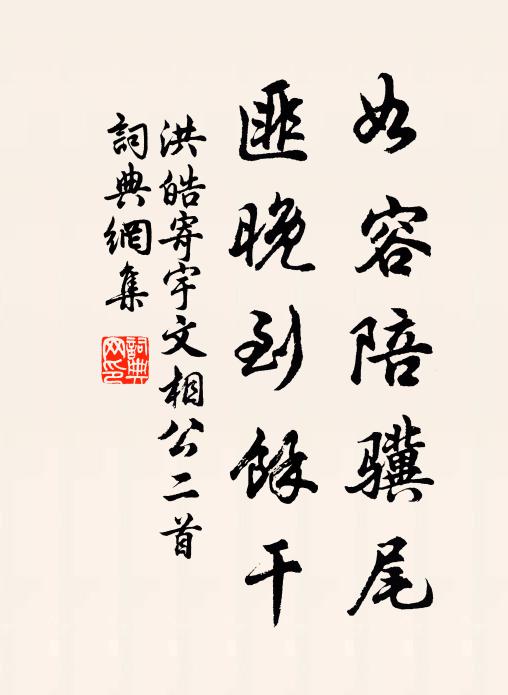 如容陪驥尾
匪晚到餘干
洪皓寄宇文相公二首
詞典網集
詞典
网印